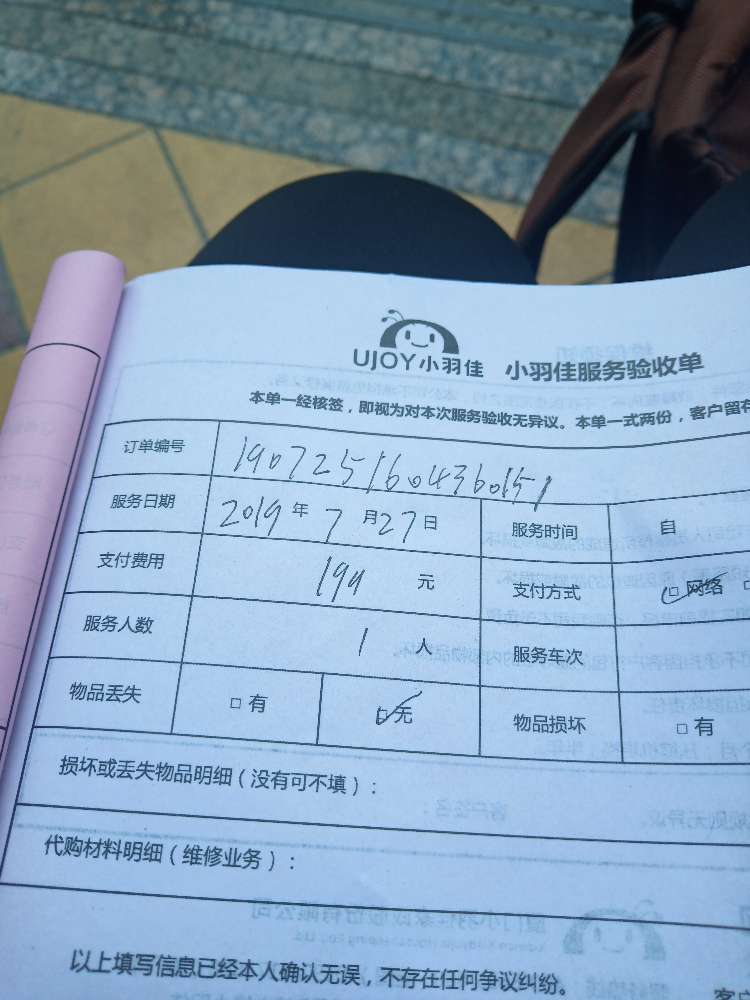 UJOY小羽佳 小羽佳服务验收单
本单一经核签，即视为对本次服务验收无异议。本单一式两份，客户留存
订单编号 1907251604360151
服务日期 2019 年 7 月 27 日 服务时间 自
支付费用 元 支付方式 □ 网络
服务人数 1 人 服务车次
物品丢失 □ 有 □ 无 物品损坏 □ 有
损坏或丢失物品明细（没有可不填）：
代购材料明细（维修业务）：
以上填写信息已经本人确认无误，不存在任何争议纠纷。